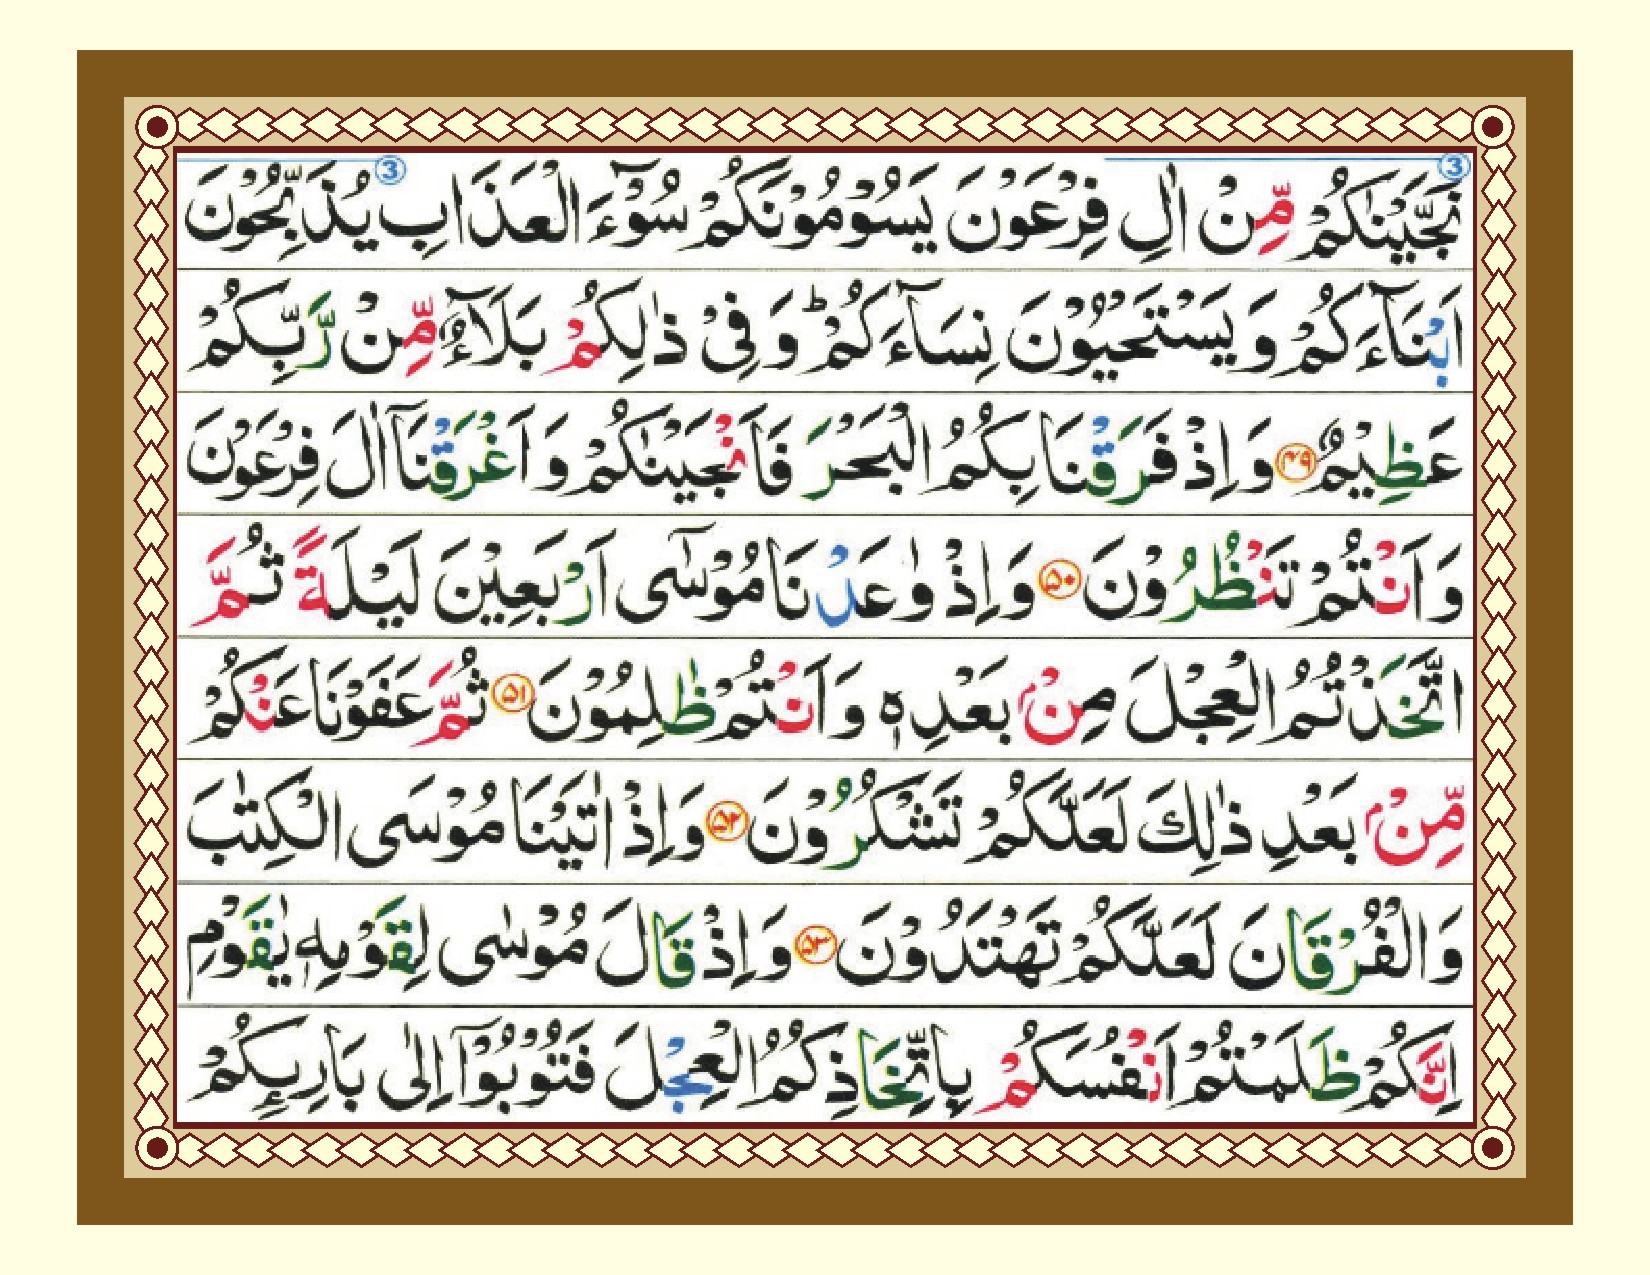 نَجَّيْنٰكُمْ مِّنْ اٰلِ فِرْعَوْنَ يَسُوْمُوْنَكُمْ سُوْٓءَ الْعَذَابِ يُذَبِّحُوْنَ
اَبْنَآءَكُمْ وَ يَسْتَحْيُوْنَ نِسَآءَكُمْ ؕ وَ فِىْ ذٰلِكُمْ بَلَآءٌ مِّنْ رَّبِّكُمْ
عَظِيْمٌ ۝۴۹ وَ اِذْ فَرَقْنَا بِكُمُ الْبَحْرَ فَاَنْجَيْنٰكُمْ وَ اَغْرَقْنَآ اٰلَ فِرْعَوْنَ
وَ اَنْتُمْ تَنْظُرُوْنَ ۝۵۰ وَ اِذْ وٰعَدْنَا مُوْسٰٓى اَرْبَعِيْنَ لَيْلَةً ثُمَّ
اتَّخَذْتُمُ الْعِجْلَ مِنْۢ بَعْدِهٖ وَ اَنْتُمْ ظٰلِمُوْنَ ۝۵۱ ثُمَّ عَفَوْنَا عَنْكُمْ
مِّنْۢ بَعْدِ ذٰلِكَ لَعَلَّكُمْ تَشْكُرُوْنَ ۝۵۲ وَ اِذْ اٰتَيْنَا مُوْسَى الْكِتٰبَ
وَ الْفُرْقَانَ لَعَلَّكُمْ تَهْتَدُوْنَ ۝۵۳ وَ اِذْ قَالَ مُوْسٰى لِقَوْمِهٖ يٰقَوْمِ
اِنَّكُمْ ظَلَمْتُمْ اَنْفُسَكُمْ بِاتِّخَاذِكُمُ الْعِجْلَ فَتُوْبُوْٓا اِلٰى بَارِىِٕكُمْ